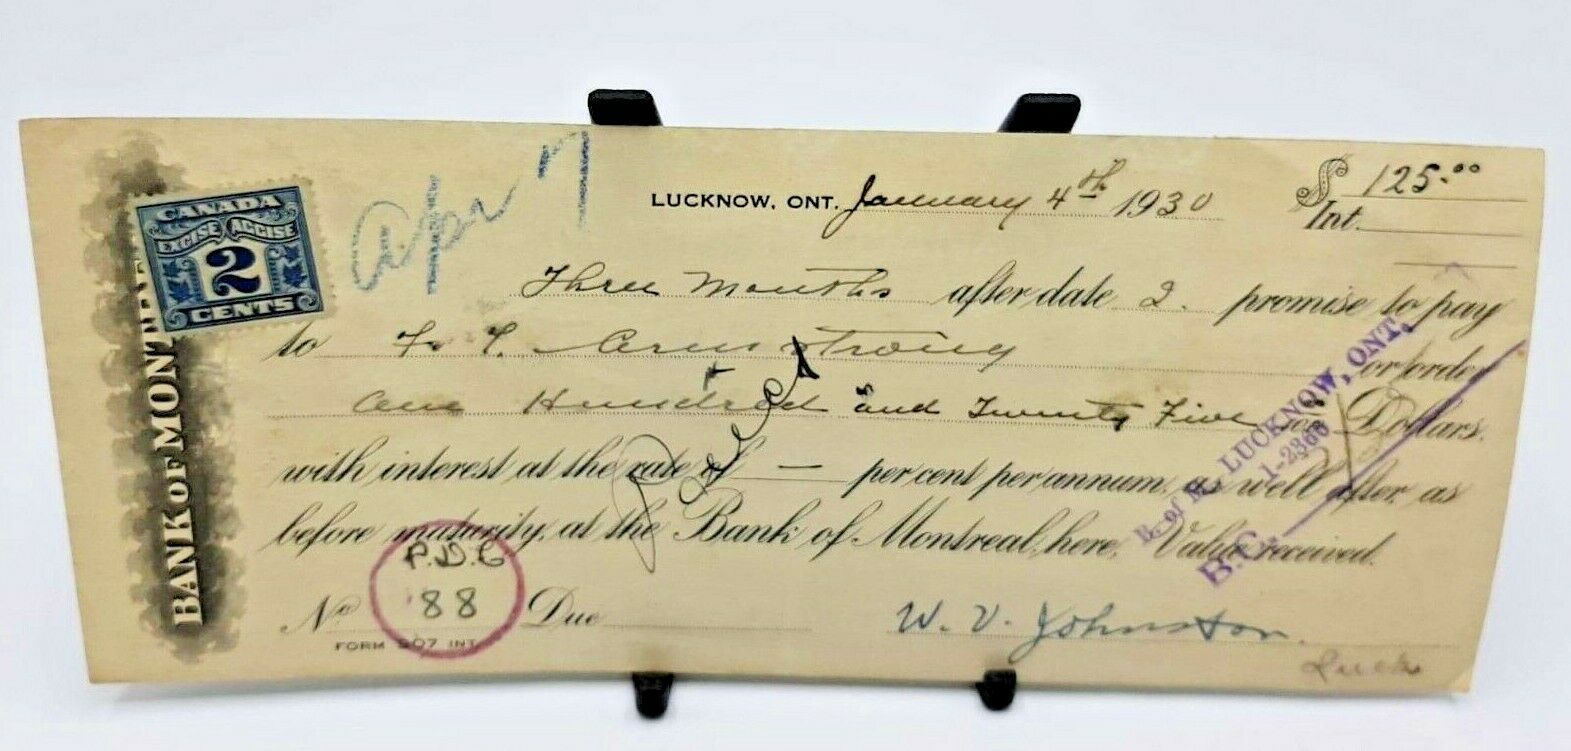 BANK OF MONTRE
CANADA
EXCISE ACCISE
2
CENTS
Apr 7
LUCKNOW, ONT. January 4th 1930 $ 125.00
Int.
Three Months after date I promise to pay
to F. T. Armstrong or order
One Hundred and Twenty Five Dollars.
with interest at the rate of — per cent per annum, as well after, as
before maturity, at the Bank of Montreal, here, Value received.
B. of M. LUCKNOW, ONT.
1-2366
B.C.
No P.D.C 88 Due W. V. Johnston.
FORM 207 INT.
Luck